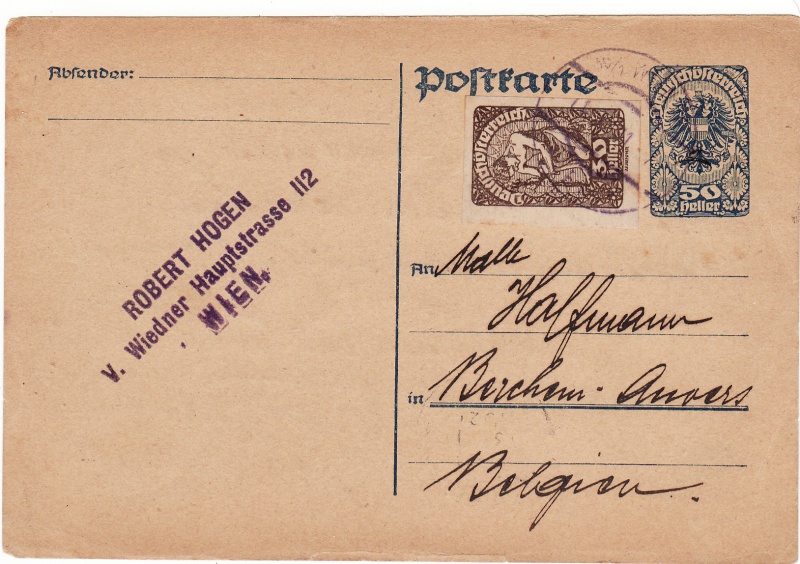 Absender:
ROBERT HOGEN
V. Wiedner Hauptstrasse 112
WIEN.
Postkarte
Deutschösterreich
30
Heller
Deutschösterreich
50
Heller
An Mlle
Halfmann
in Berchem-Anvers
Belgien.